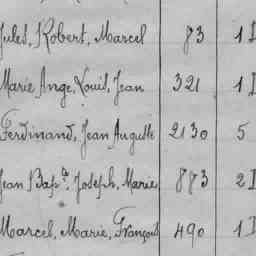 Jules, Robert, Marcel 83 1 D
Marie Ange, Louis, Jean 321 1 D
Ferdinand, Jean Auguste 2130 5
Jean Bapte, Joseph, Marie 873 2 D
Marcel, Marie, François 490 1 D